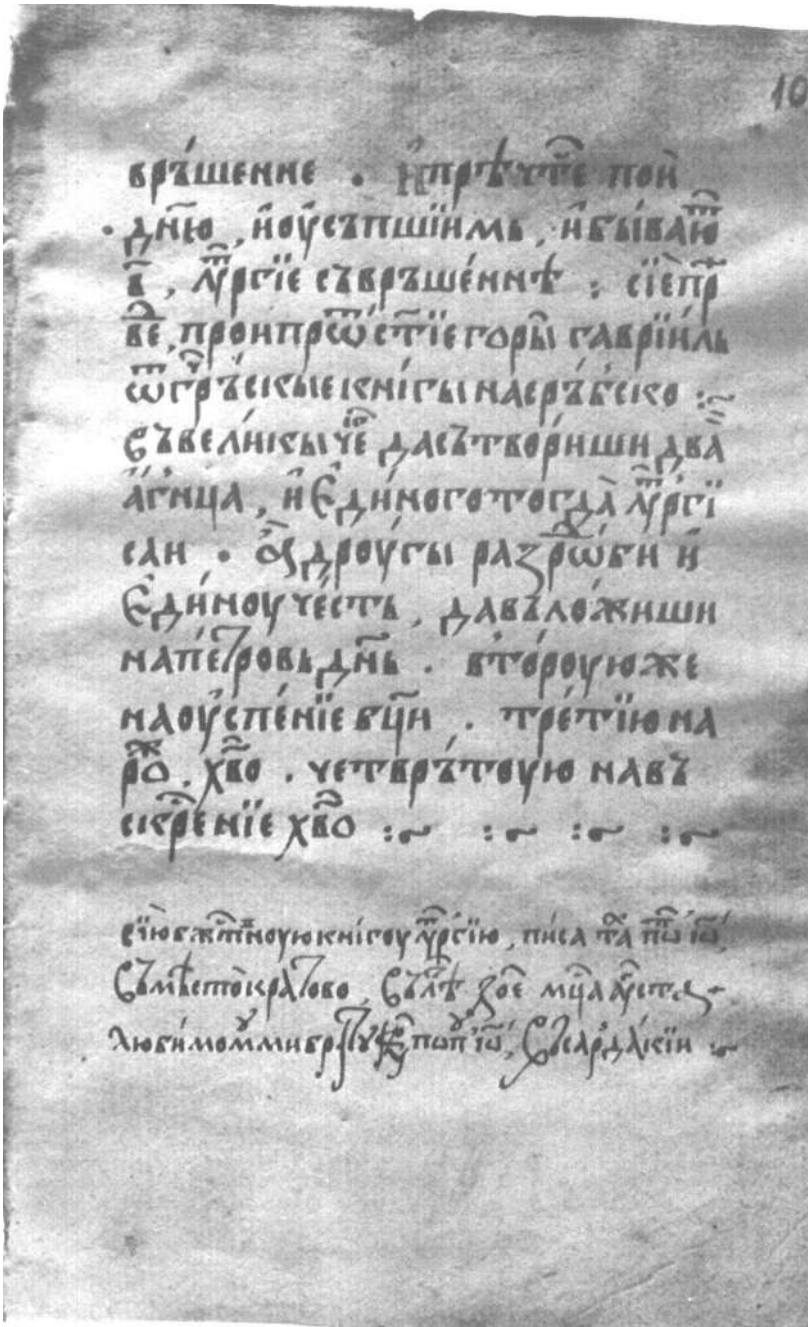 10
врꙿшенне · и҆ прѣчⷭ҇тїе пои҆
· дн҃ю , и҆оу҆съпшїимь , и҆бываю҆ⷮ
в҃ , лⷮу҆ргїе съврꙿше́ннѣ : сїе прⷣ
вⷣе , прои прⷪ҇ѿсⷮїе горы҆ гаврїи́ль
ѿгрꙿⷱескые кни́гы на срꙿбско :~
Съ вели́кы чⷮе҆ да сътво́риши два҆
а҆́гнца , и҆ є҆ди́ного тогда̀ лⷮу҆ргї
саи · а҆ дроу́гы раздрѡ́би и҆
є҆ди́ноу че́сть , да въло́жиши
на пе́тровь дн҃ь . вто́роую же
на оу҆спе́нїе бц҃и . тре́тїю на
рⷤо . хв҃о . четврꙿтоую на въ
скрⷭ҇енїе хв҃о :~ :~ :~ :~
сїю бжⷭ҇твноую кни́гоу лⷮу҆ргїю , писа та пѡⷫ҇ і҆ѡ҃
Съ мѣсто̀ кратово , Съ лѣⷮ
люби́момꙋ ми братꙋ пѡпꙋ і҆ѡ҃ ,